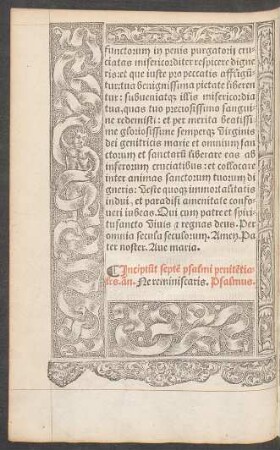 functorum in penis purgatorij cru
ciatas misericorditer respicere digne
tis: et que iuste pro peccatis affligū
tur: tua benignissima pietate liberen
tur: subueniatqȝ illis misericordia
tua, quas tuo preciosissimo sangui
ne redemisti: et per merita beatissi
me gloriosissime semperqȝ virginis
dei genitricis marie et omnium san
ctorum et sanctarū liberare eas ab
inferorum cruciatibus: et collocare
inter animas sanctorum tuorum di
gneris: Veste quoqȝ immortalitatis
indui, et paradisi amenitate confo
ueri iubeas. Qui cum patre et spiri
tusancto Viuis et regnas deus. Per
omnia secula seculorum. Amen. Pa
ter noster. Aue maria.
¶ Incipiūt septē psalmi penitētia
les. añ. Ne reminiscaris. Psalmus.